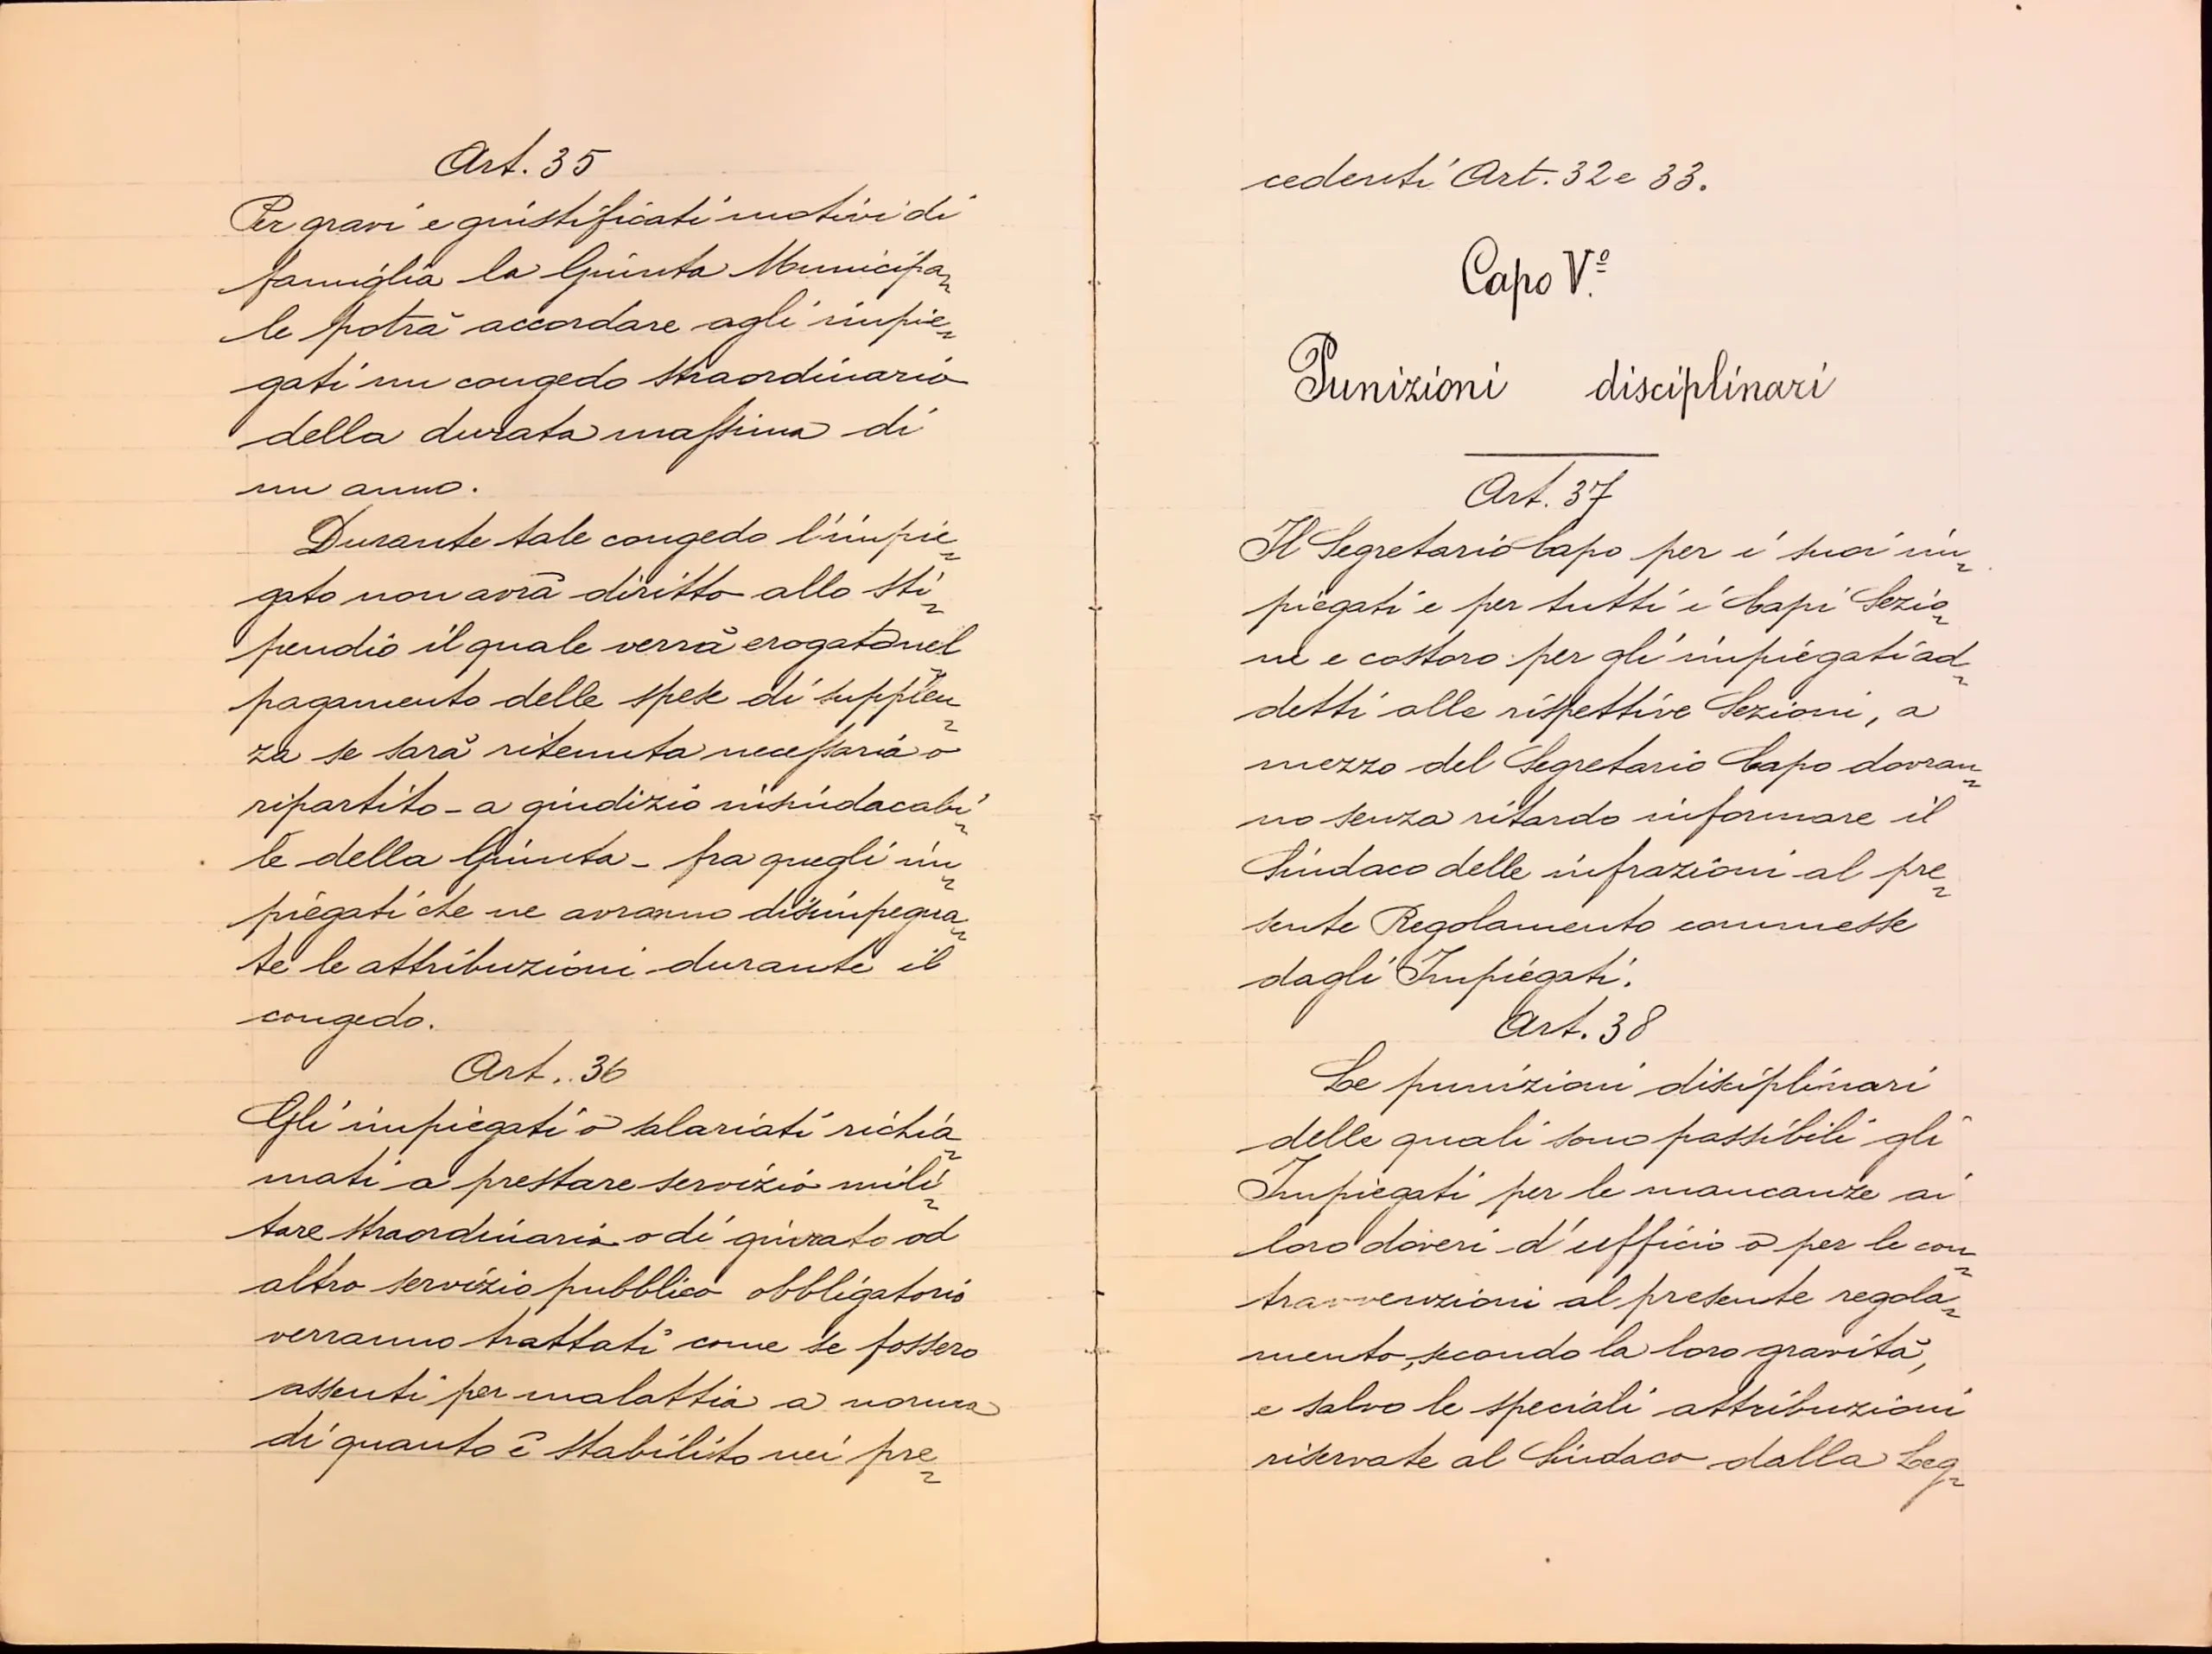 Art. 35
Per gravi e giustificati motivi di
famiglia la Giunta Municipa=
le potrà accordare agli impie=
gati un congedo straordinario
della durata massima di
un anno.
Durante tale congedo l'impie=
gato non avrà diritto allo sti=
pendio il quale verrà erogato nel
pagamento delle spese di supplen=
za se sarà ritenuta necessaria o
ripartito - a giudizio insindacabi=
le della Giunta - fra quegli im=
piegati che ne avranno disimpegna=
te le attribuzioni durante il
congedo.
Art. 36
Gli impiegati o salariati richia=
mati a prestare servizio mili=
tare straordinario o di giurato od
altro servizio pubblico obbligatorio
verranno trattati come se fossero
assenti per malattia a norma
di quanto è stabilito nei pre=
cedenti Art. 32 e 33.
Capo V.º
Punizioni disciplinari
Art. 37
Il Segretario Capo per i suoi im=
piegati e per tutti i Capi Sezio=
ne e costoro per gli impiegati ad=
detti alle rispettive Sezioni, a
mezzo del Segretario Capo dovran=
no senza ritardo informare il
Sindaco delle infrazioni al pre=
sente Regolamento commesse
dagli Impiegati.
Art. 38
Le punizioni disciplinari
delle quali sono passibili gli
Impiegati per le mancanze ai
loro doveri d'ufficio o per le con=
travvenzioni al presente regola=
mento, secondo la loro gravità,
e salvo le speciali attribuzioni
riservate al Sindaco dalla Leg=